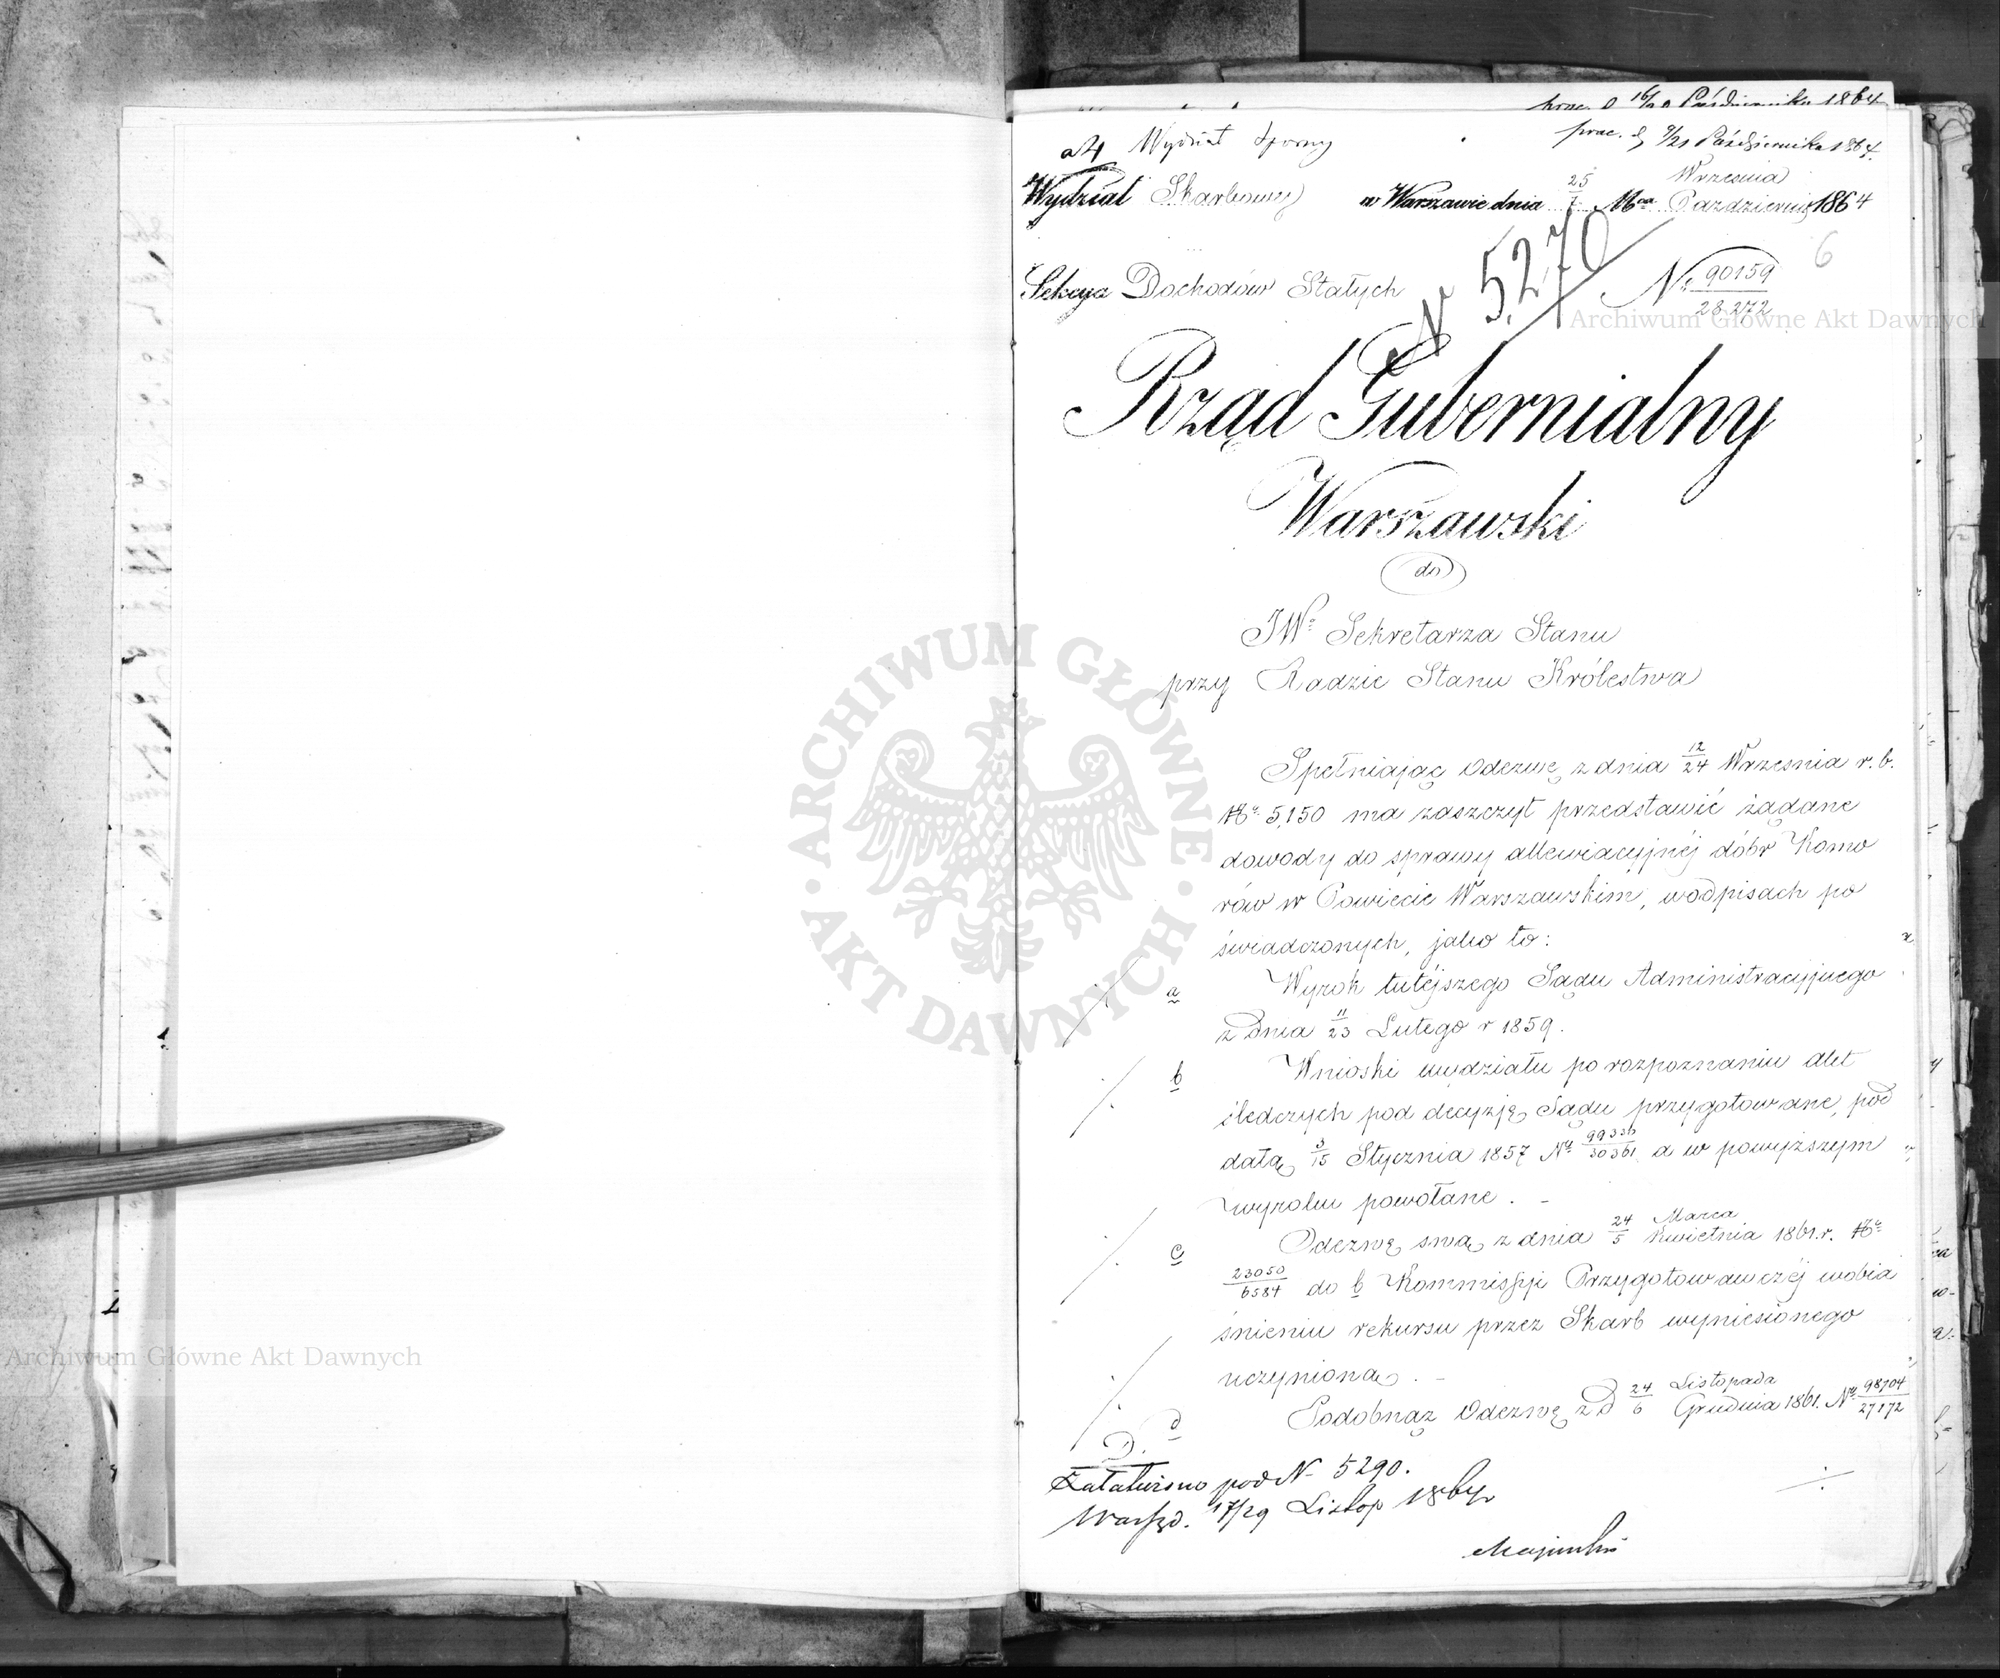 prac. d 16/28 Października 1864
prac. d 9/21 Października 1864.
Wydział Sporny
Wydział Skarbowy w Warszawie dnia 25/7 Mca Września/Paździer. 1864
6
N 5,270
Sekcya Dochodów Stałych
No 90159/28272
Rząd Gubernialny
Warszawski
do
JWo Sekretarza Stanu
przy Radzie Stanu Królestwa
Spełniając Odezwę z dnia 12/24 Września r. b.
No 5,150 ma zaszczyt przedstawić żądane
dowody do sprawy allewiacyjnéj dóbr Komo
rów w Powiecie Warszawskim, w odpisach po
świadczonych, jako to:
a Wyrok tutéjszego Sądu Administracyjnego
z dnia 11/23 Lutego r 1859.
b Wnioski wydziału po rozpoznaniu akt
śledczych pod decyzję Sądu przygotowane, pod
datą 3/15 Stycznia 1857 No 99336/30361 a w powyższym
wyroku powołane. -
c Odezwę swą z dnia 24/5 Marca/Kwietnia 1861 r. No
23050/6584 do b Kommissyi Przygotowawczéj w obia
śnieniu rekursu przez Skarb wyniesionego
uczynioną. -
d Podobnąż Odezwę z d 24/6 Listopada/Grudnia 1861. No 98704/27172
D.
Załatwiono pod N 5290.
Warsz. d. 17/29 Listop 1864 r
Archiwum Główne Akt Dawnych
ARCHIWUM GŁÓWNE · AKT DAWNYCH ·
Archiwum Główne Akt Dawnych